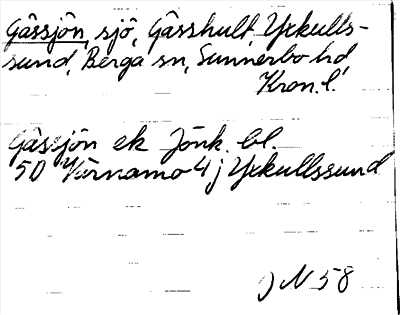 Gåssjön, sjö, Gåsshult Yxkulls-
sund, Berga sn, Sunnerbo hd
Kron. l.
Gåssjön ek Jönk. bl.
5D Värnamo 4 j Yxkullssund
JN 58